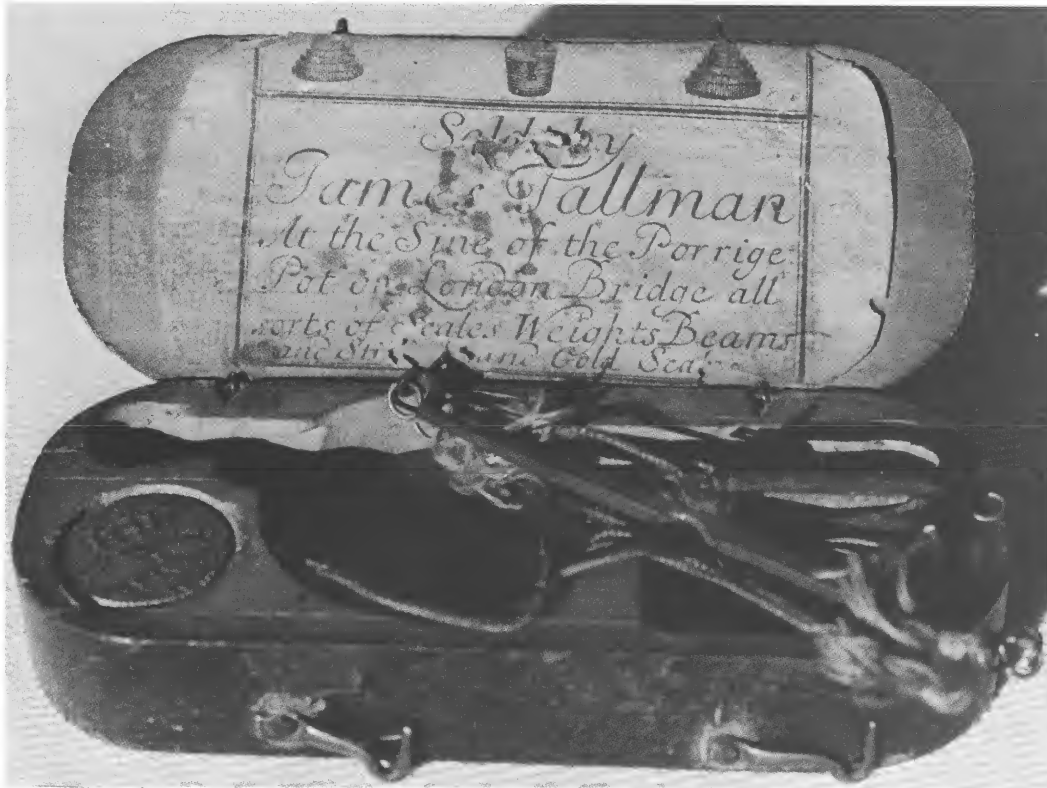 Sold by
James Tallman
At the Sine of the Porrige
Pot on London Bridge all
sorts of Scales Weights Beams
and and Gold